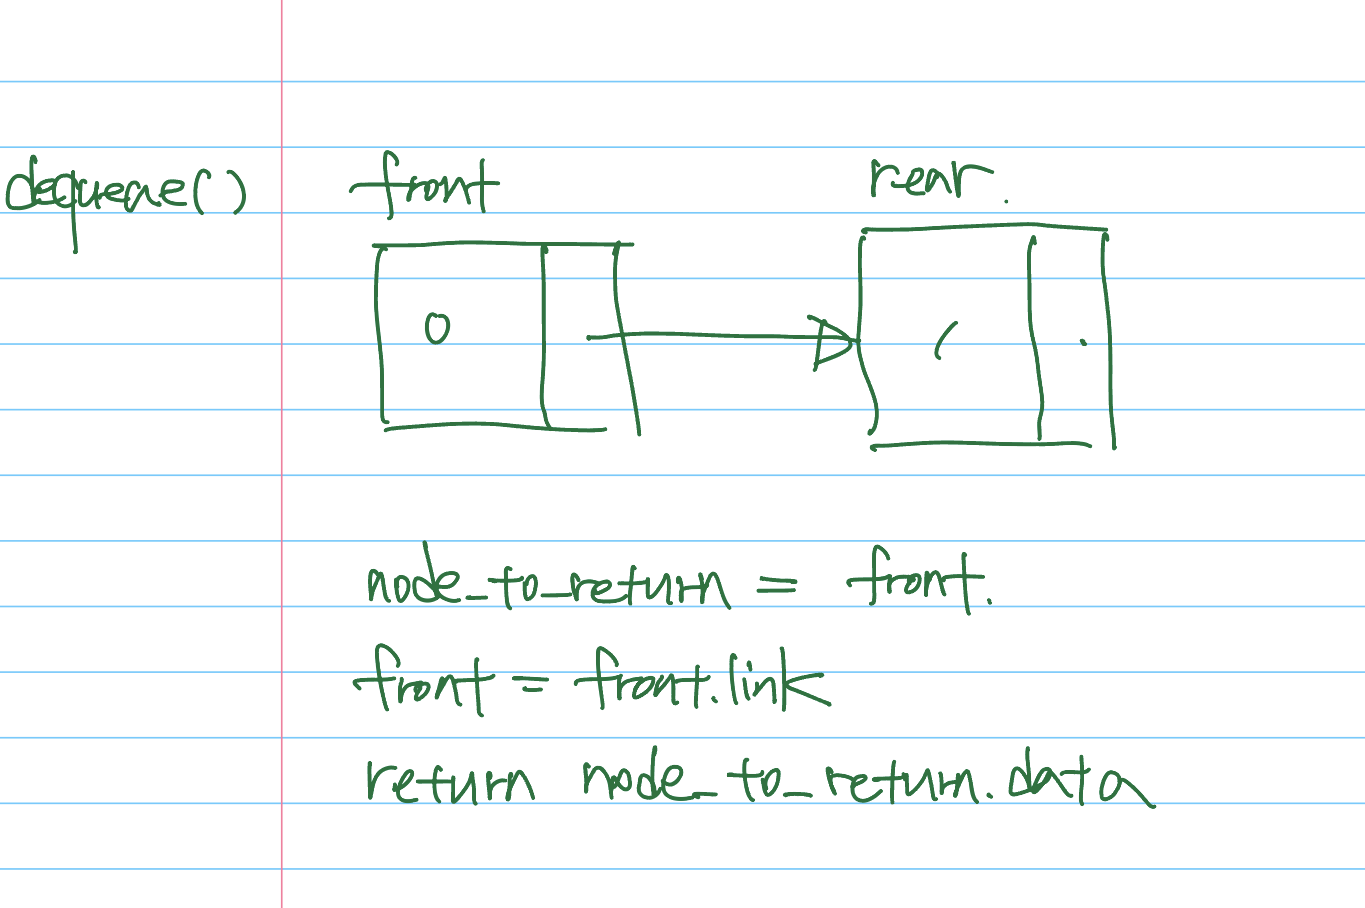 dequeue() front rear.
0 1
node_to_return = front.
front = front.link
return node_to_return.data